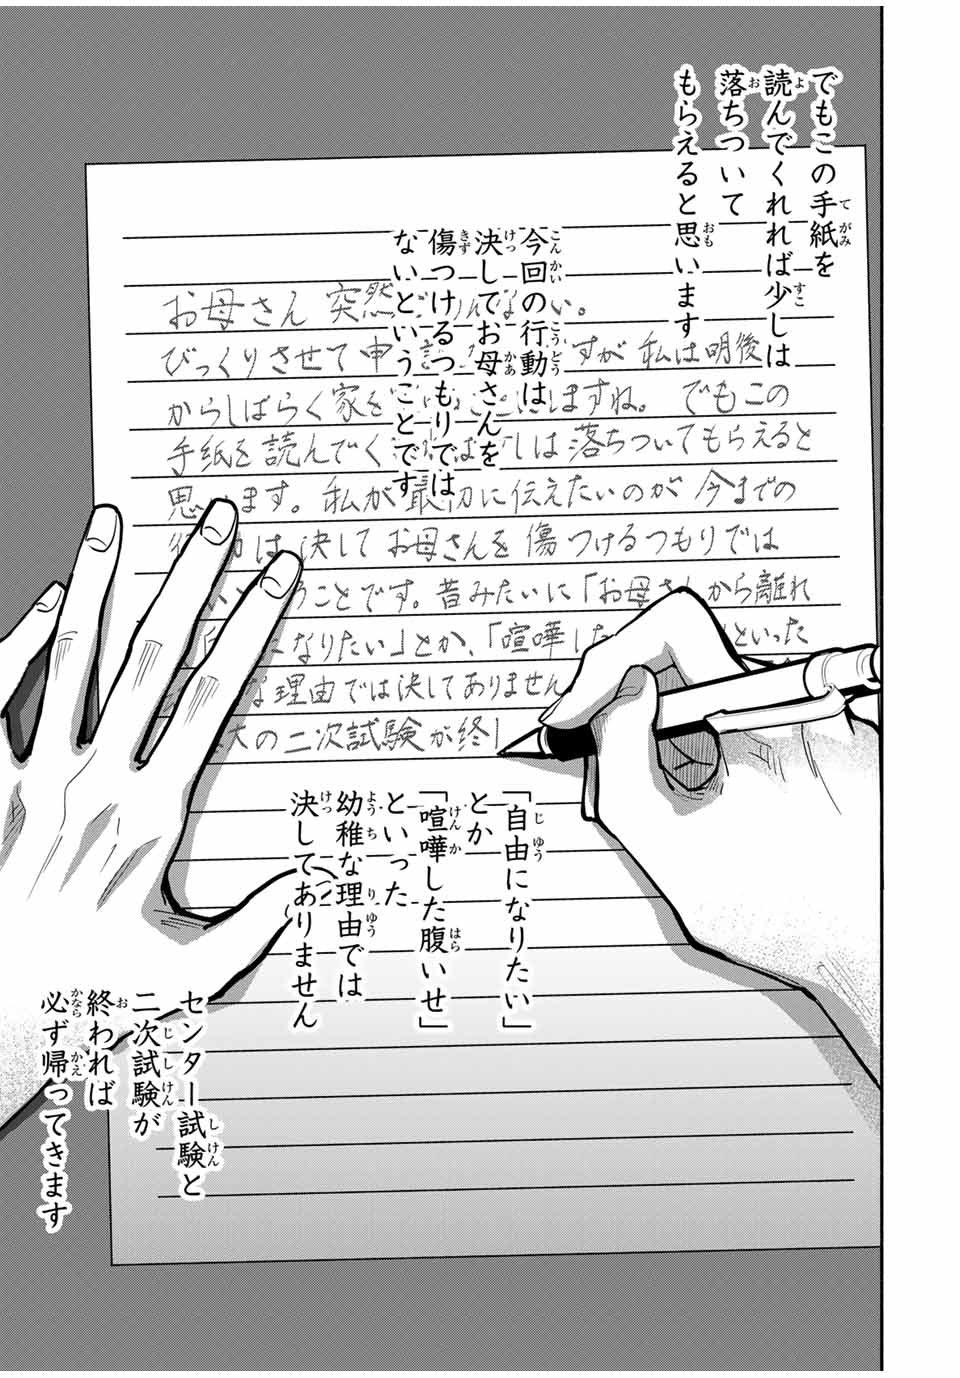 でもこの手紙を
読んでくれれば少しは
落ちついて
もらえると思います
今回の行動は
決してお母さんを
傷つけるつもりでは
ないということです
お母さん 突然
い。
びっくりさせて申
すが 私は明後
からしばらく家を
ますね。 でもこの
手紙を読んでく
しは落ちついてもらえると
思います。私が最初に伝えたいのが 今までの
は 決して お母さんを 傷つけるつもりでは
うことです。昔みたいに「お母さんから離れ
なりたい」とか、「喧嘩した
といった
な理由では決してありません
の二次試験が終
「自由になりたい」
とか
「喧嘩した腹いせ」
といった
幼稚な理由では
決してありません
センター試験と
二次試験が
終われば
必ず帰ってきます